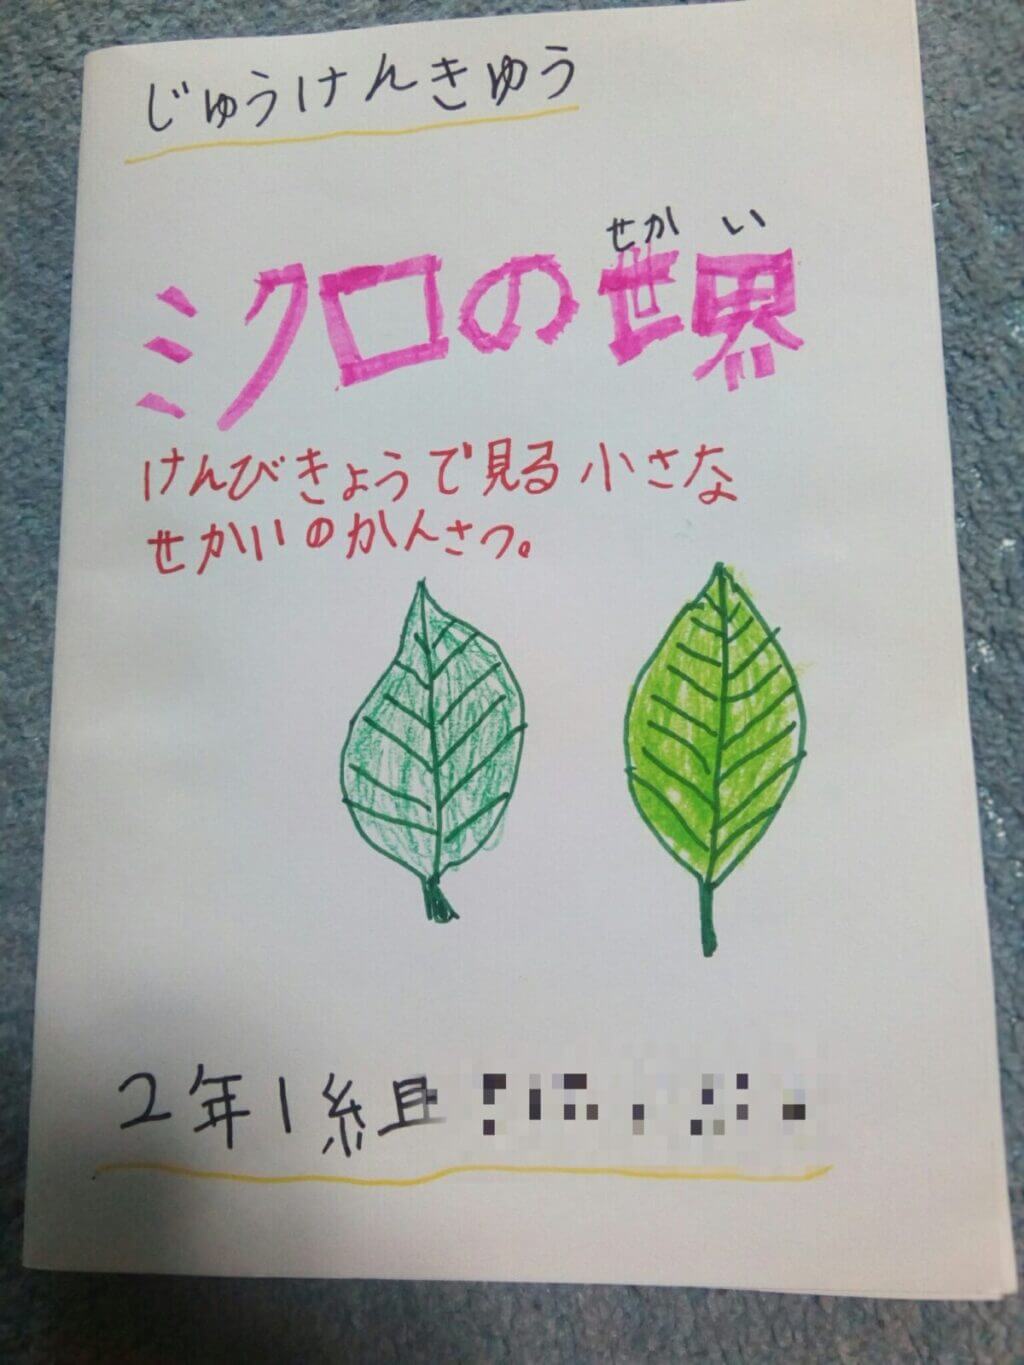 じゅうけんきゅう
せかい
ミクロの世界
けんびきょうで見る小さな
せかいのかんさつ。
2年1組